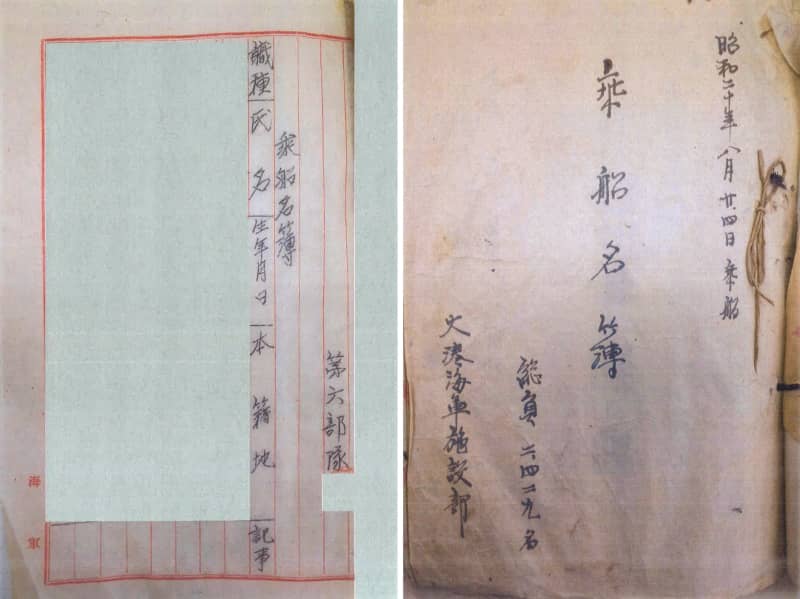 昭和二十年八月廿四日乗船
乗船名簿
総員二四二九名
大湊海軍施設部
第六部隊
乗船名簿
職種 氏名 生年月日 本籍地 記事
海軍